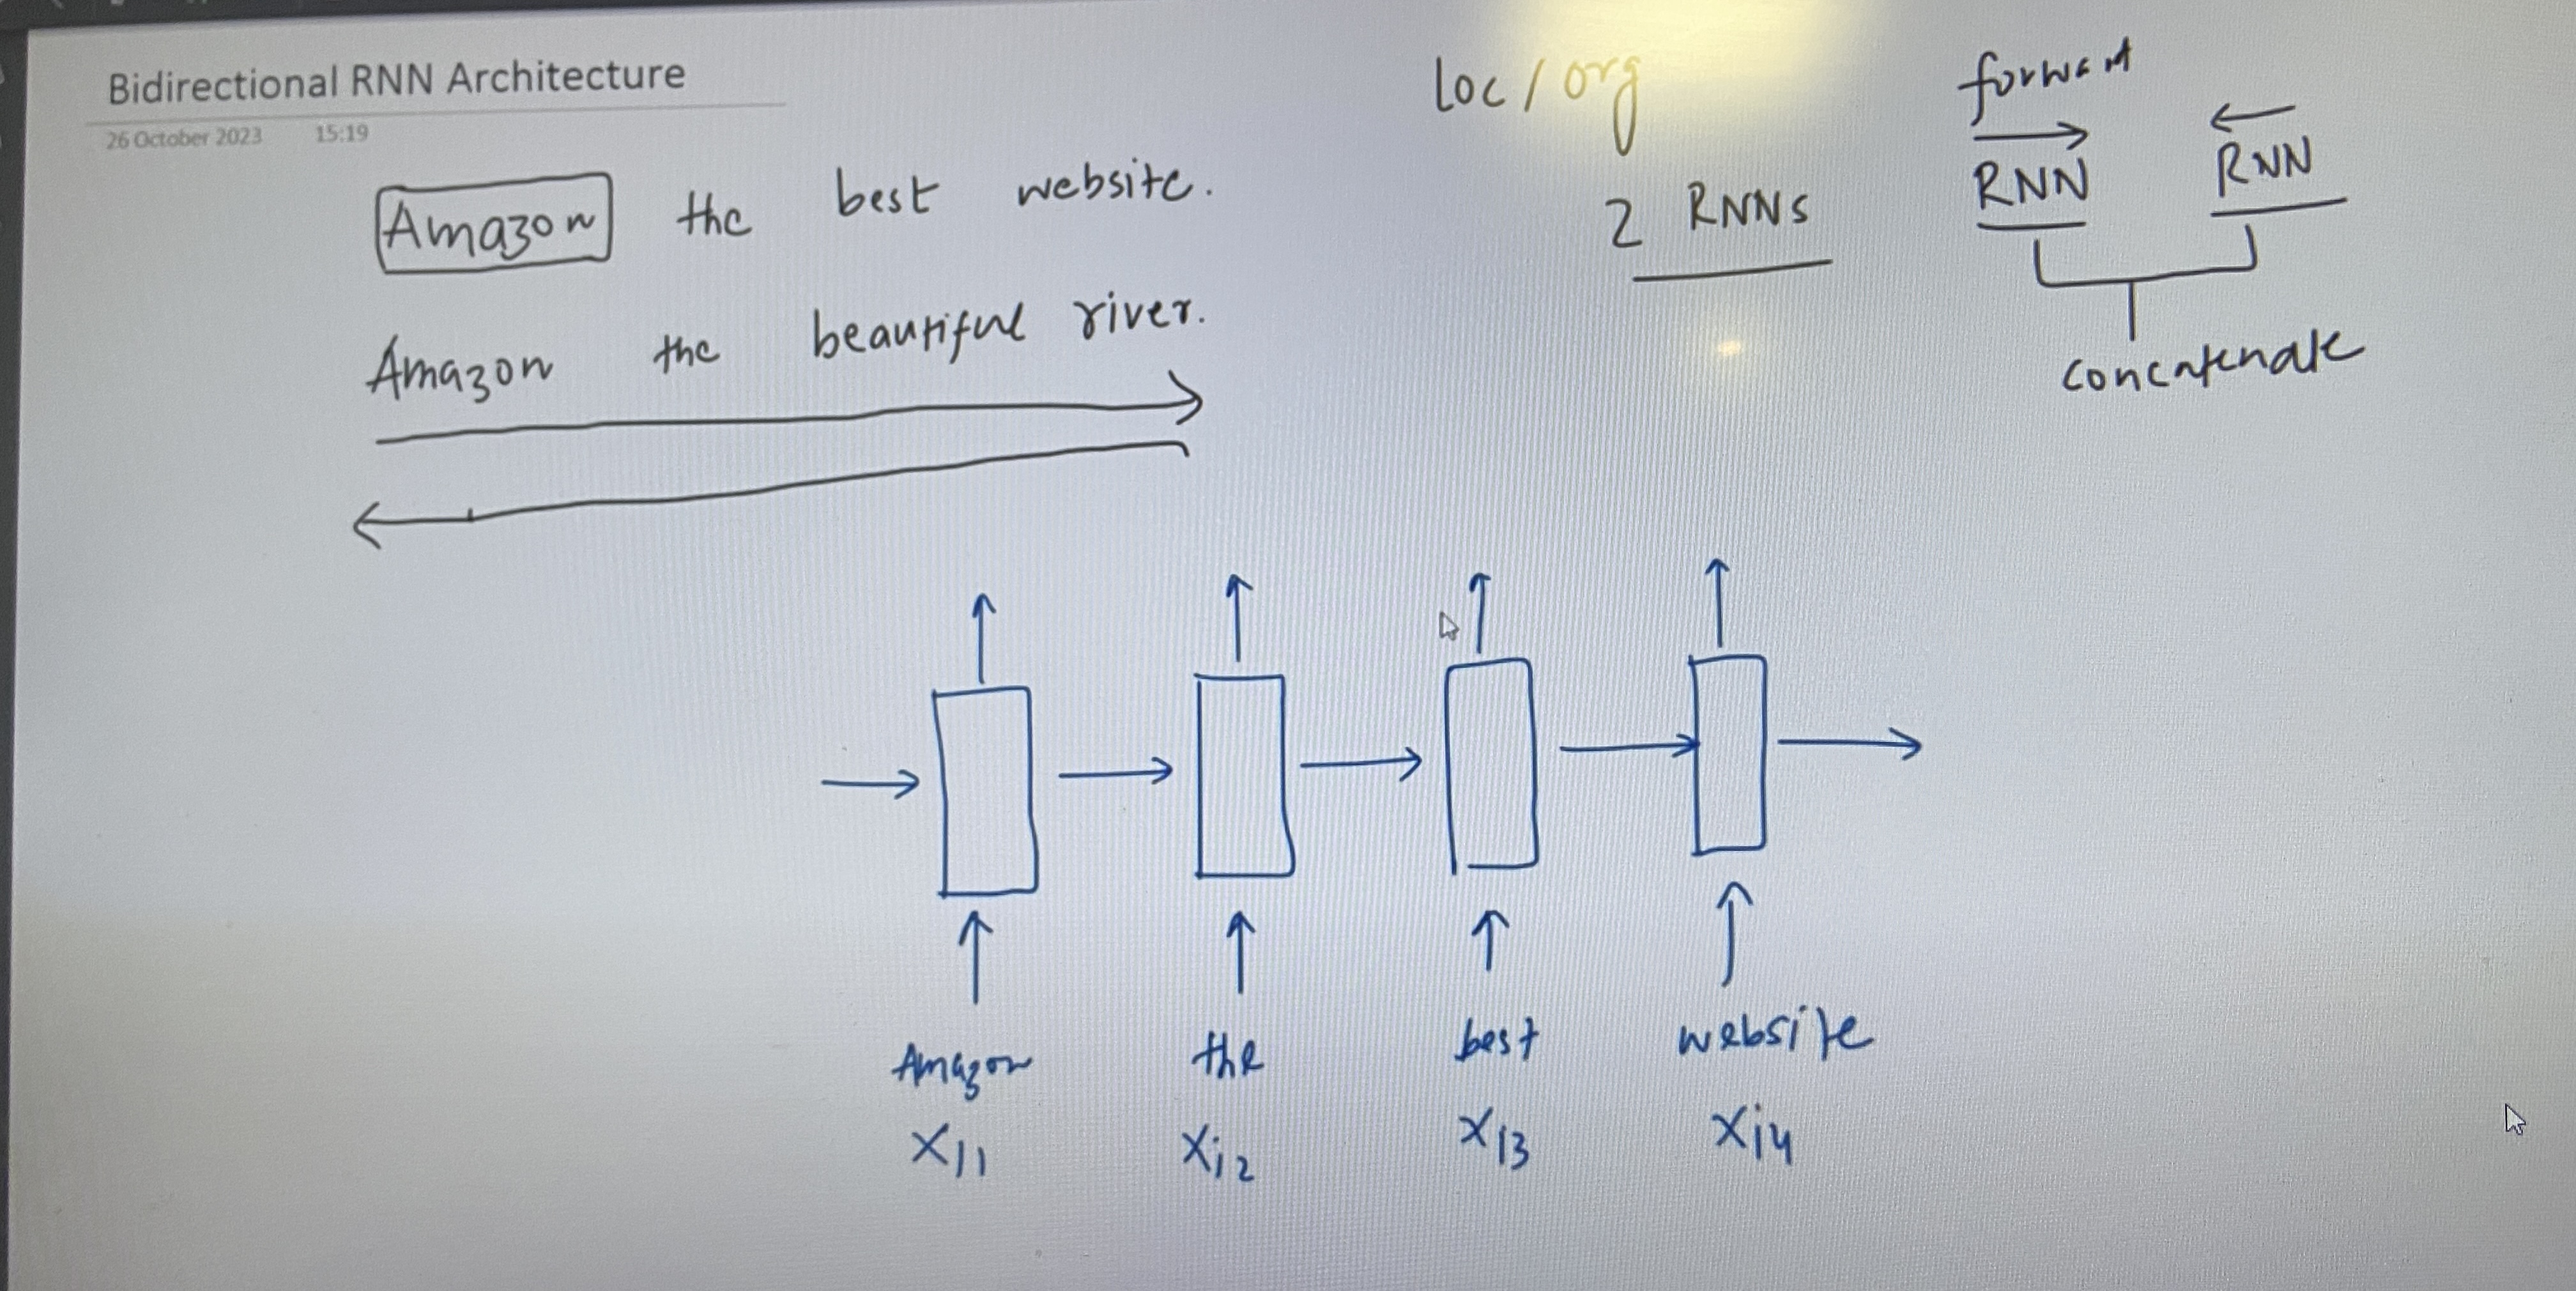 Bidirectional RNN Architecture
26 October 2023 15:19
Amazon the best website.
Amazon the beautiful river.
Loc / org
2 RNNs
forward
RNN RNN
concatenate
Amazon the best website
X11 Xi2 X13 Xi4